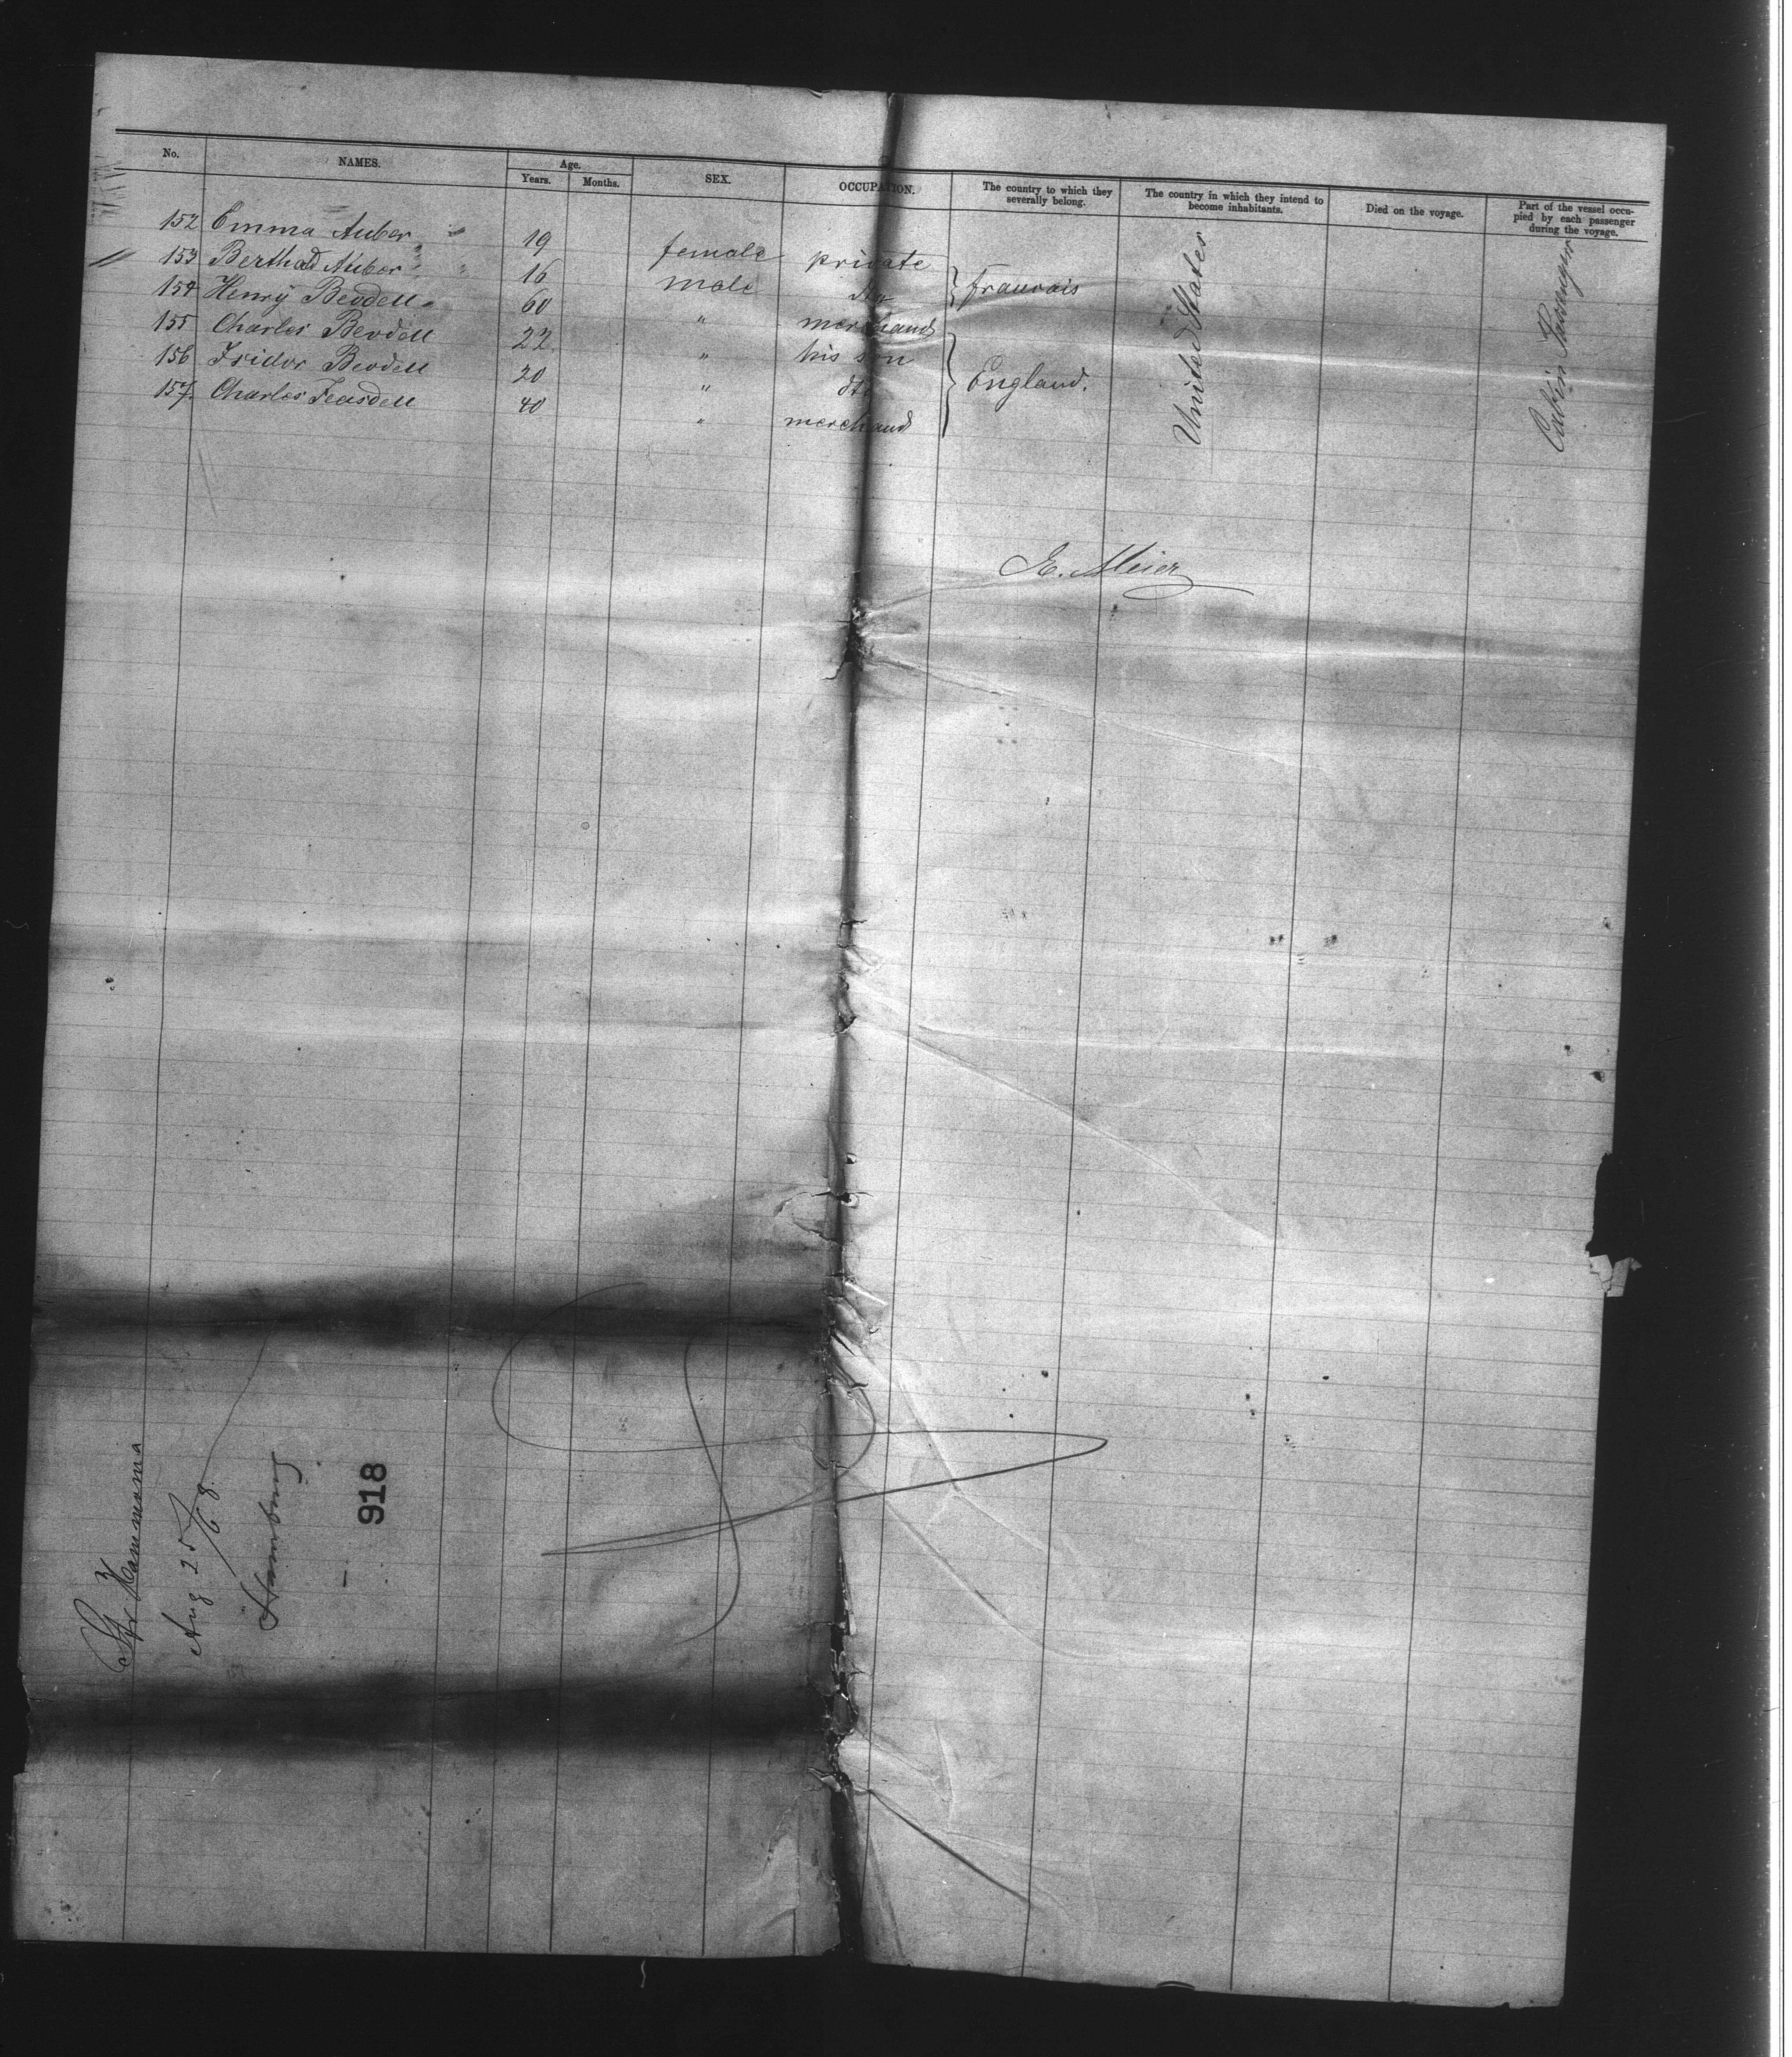 No. NAMES. Age. Years. Months. SEX. OCCUPATION. The country to which they severally belong. The country in which they intend to become inhabitants. Died on the voyage. Part of the vessel occupied by each passenger during the voyage.
152 Emma Auber 19 female private
153 Berthold Auber 16 male dto } Francais
154 Henry Beddell 60 " merchand
155 Charles Beddell 22 " his son
156 Isidor Beddell 20 " dto } England.
157. Charles Teasdell 40 " merchand
United States
Cabin Passenger
E. Meier
Str Hammonia
Aug 25/68
Hamburg
918